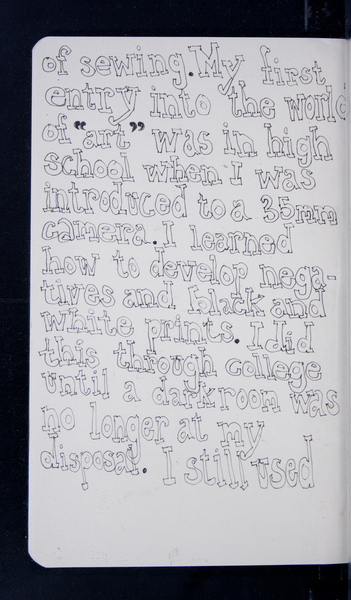 of sewing. My first
entry into the world
of "art" was in high
school when I was
introduced to a 35mm
camera. I learned
how to develop nega-
tives and black and
white prints. I did
this through college
until a darkroom was
no longer at my
disposal. I still used